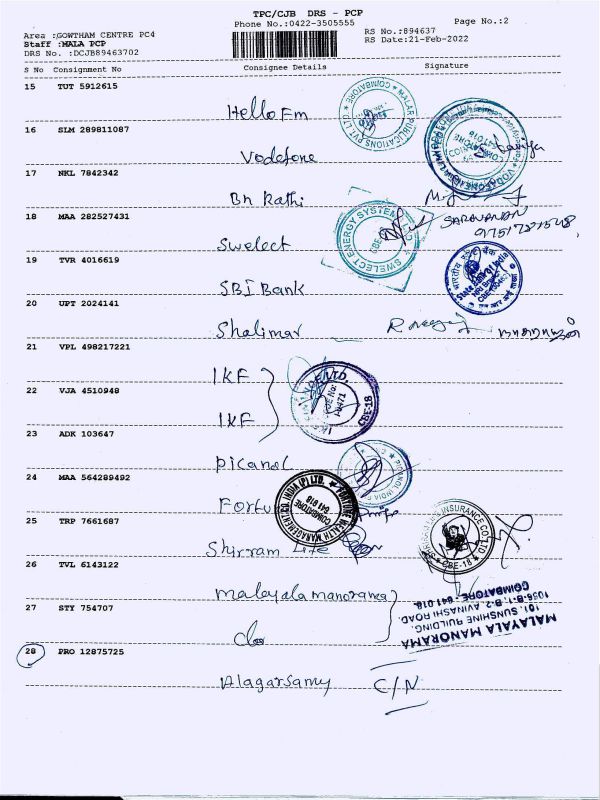 TPC/CJB DRS - PCP
Phone No.:0422-3505555
Page No.:2
Area :GOWTHAM CENTRE PC4
RS No.:894637
Staff :MALA PCP
RS Date:21-Feb-2022
DRS No. :DCJB89463702
S No Consignment No Consignee Details Signature
15 TUT 5912615
Hello Fm
MALAR PUBLICATIONS PVT. LTD. COIMBATORE
16 SLM 289811087
Vodafone
17 NKL 7842342
Bn Rathi
18 MAA 282527431
SARAVANAN
9751781548,
Swelect
SWELECT ENERGY SYSTEMS
19 TVR 4016619
SBI Bank
State Bank of India
20 UPT 2024141
Shalimar
21 VPL 498217221
IKF
22 VJA 4510948
IKF
CBE-18
23 ADK 103647
Picanol
PICANOL INDIA
24 MAA 564289492
Fortu
FORTUNE WEALTH MANAGEMENT CO. INDIA (P) LTD.
COIMBATORE
641 018
25 TRP 7661687
Shirram Life
INSURANCE CO LTD
CBE-18
26 TVL 6143122
malayala manorama
MALAYALA MANORAMA
101, SUNSHINE BUILDING,
1056-B-1, B-2, AVINASHI ROAD,
COIMBATORE 641 018.
27 STY 754707
do
28 PRO 12875725
Alagarsamy C/N